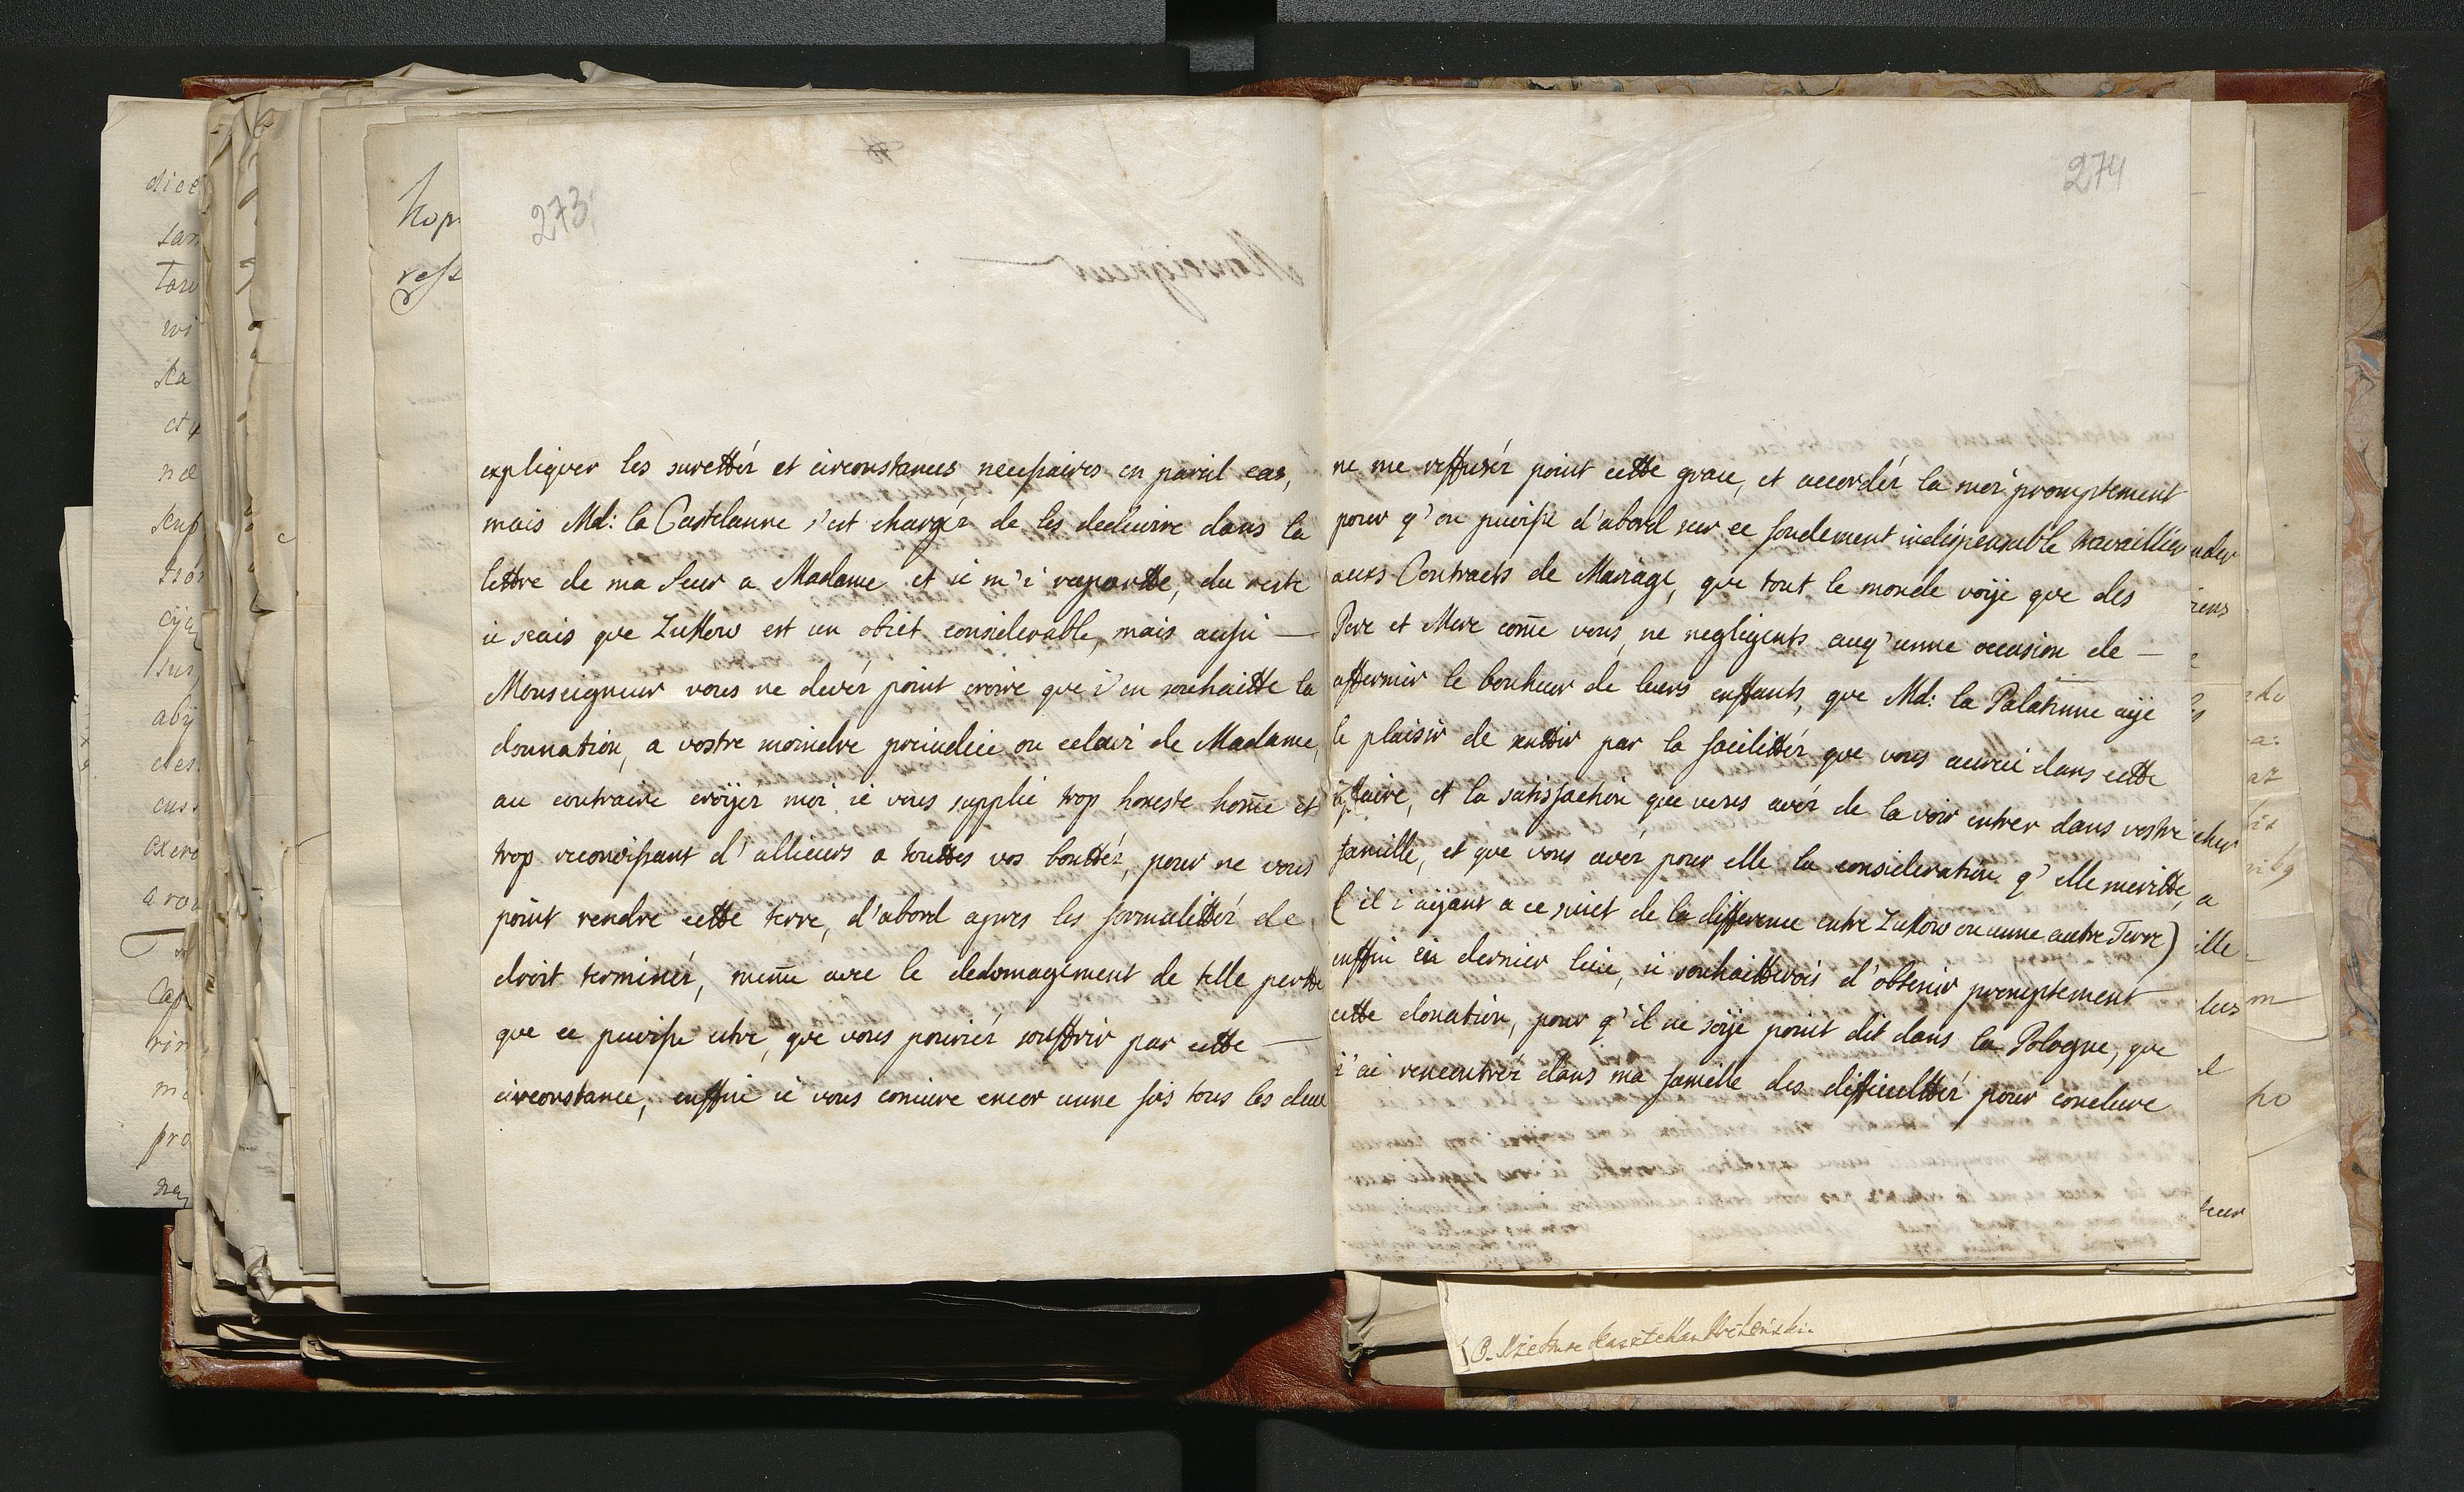 273.
expliquer les surettéz et circonstances necessaires en pareil cas,
mais Md: la Castelanne s'est chargéz de les deduire dans la
lettre de ma Seur a Madame et ie m'i raportte, du reste
ie scais que Zułkow est un obiet considerable, mais aussi —
Monseigneur vous ne devéz point croire que i'en souhaitte la
donnation, a vostre moindre preiudice ou celuiz de Madame,
au contraire croÿez moi ie vous supplie trop honeste home et
trop reconoissant d'allieurs a touttes vos bonttéz, pour ne vous
point rendre cette terre, d'abord apres les formalittéz de
droit terminéz, meme avec le dedomagement de telle pertte
que ce puisse etre, que vous pouriéz souffrir par cette —
circonstance, enffin ie vous coniure encor unne fois tous les deux
274
ne me reffuséz point cette grace, et accordéz la moi promptement
pour q'on puisse d'abord sur ce fondement indispensable travaillier
aux Contracts de Mariage, que tout le monde voije que des
Pere et Mere come vous, ne negligents auq'unne occasion de —
affermir le bonheur de leurs enffants, que Md: la Palatinne aije
le plaisir de senttir par la facilittéz que vous auréz dans cette
affaire, et la satisfaction que vous avéz de la voir entrer dans vostre
famille, et que vous avéz pour elle la consideration q'elle meritte,
(il i aijant a ce suiet de la difference entre Zułkow ou unne autre Terre)
enffin en dernier lieu, ie souhaitterois d'obtenir promptement
cette donation, pour q'il ne soije point dit dans la Pologne, que
i'ai rencontréz dans ma famille des difficulttéz pour conclure